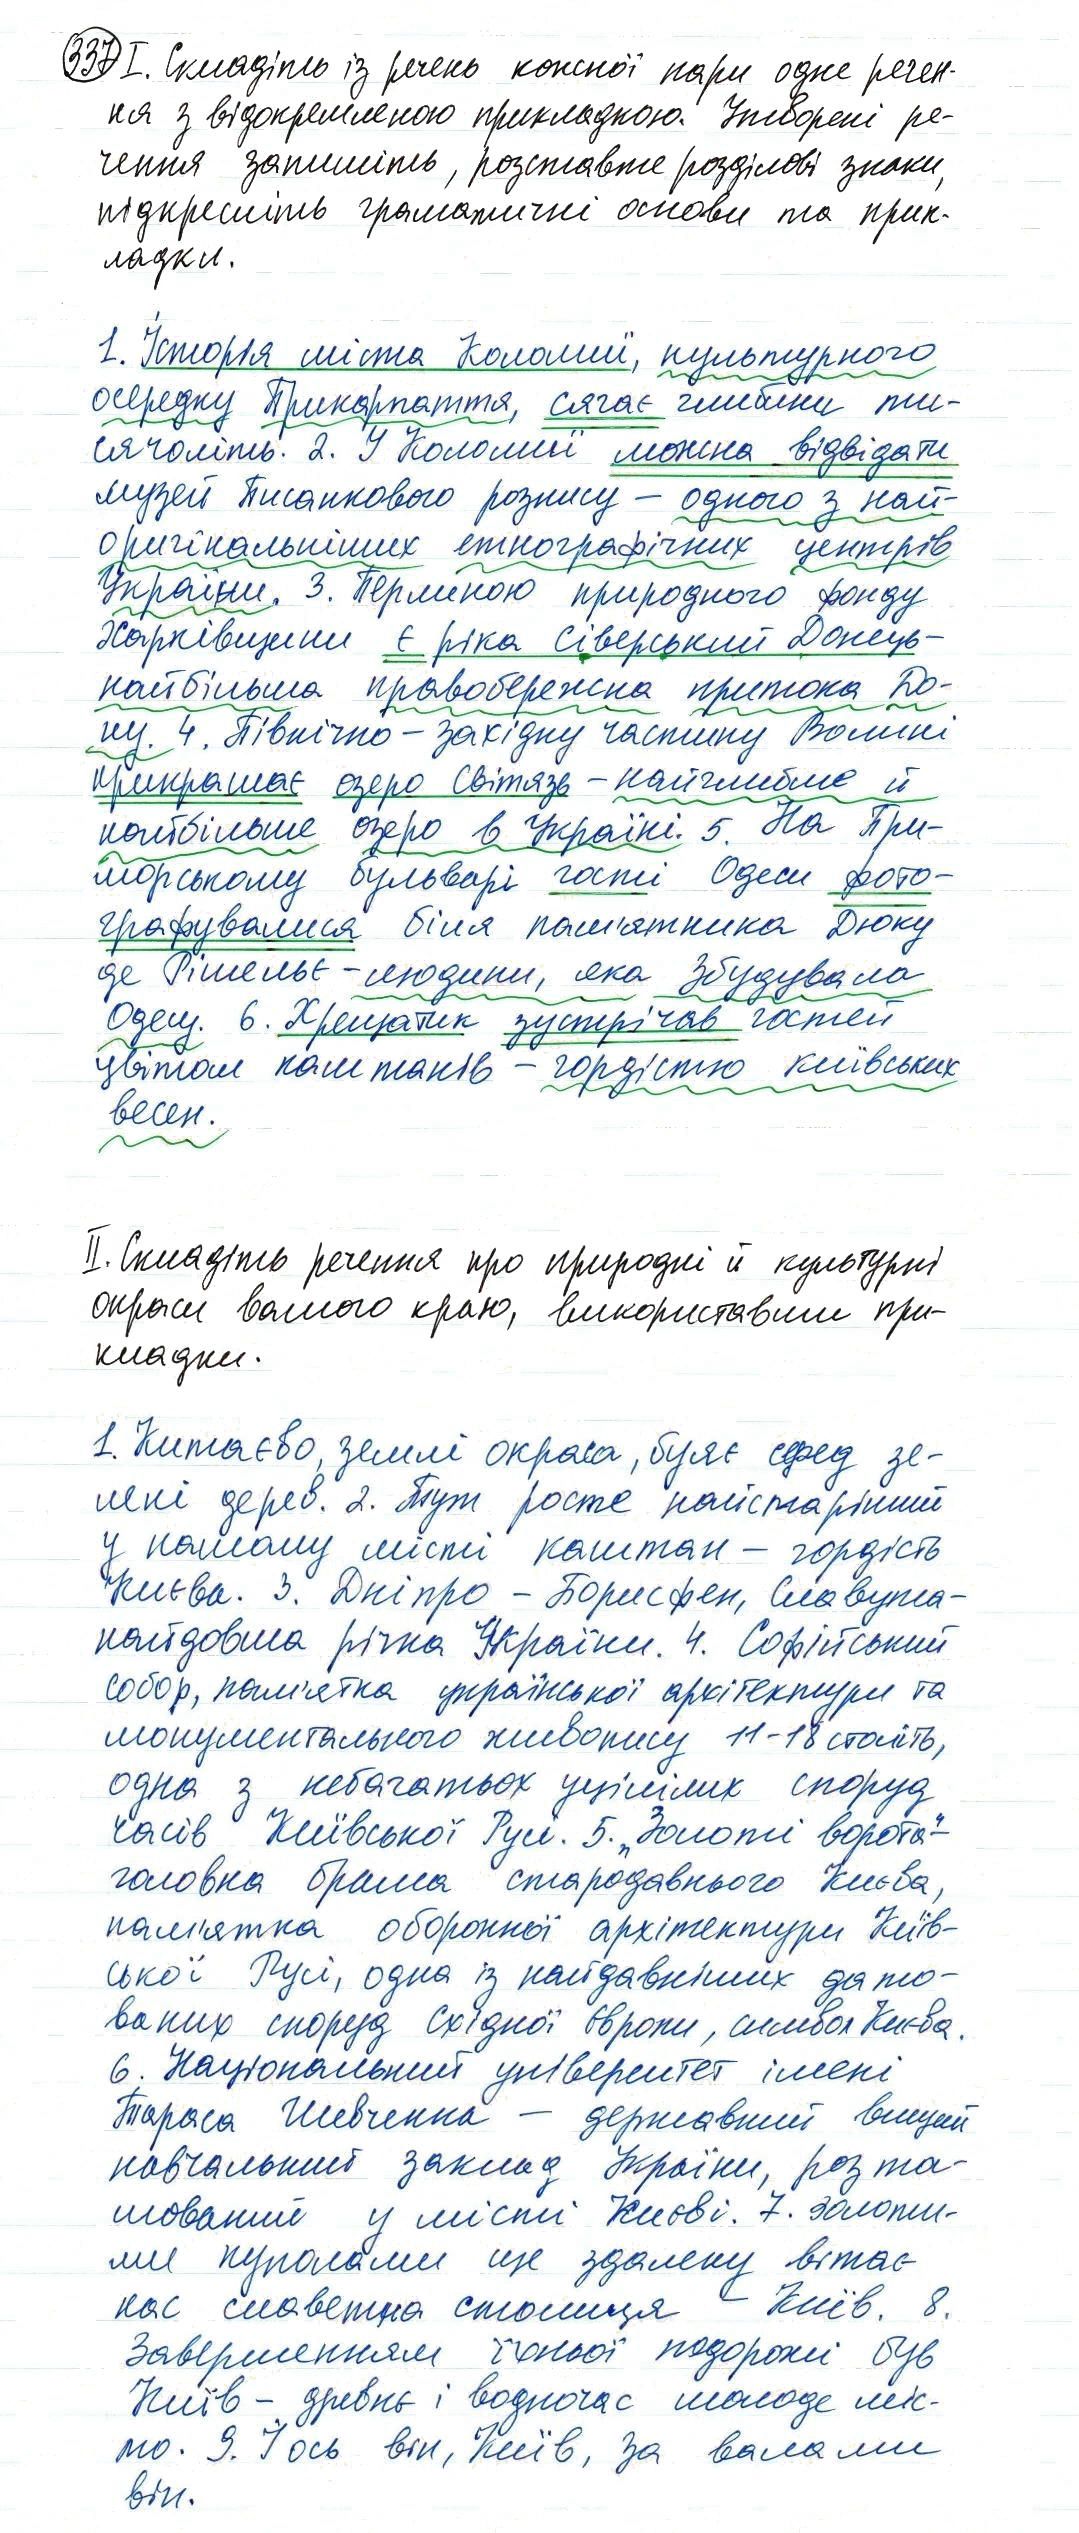 337 I. Складіть із речень кожної пари одне речен-
ня з відокремленою прикладкою. Утворені ре-
чення запишіть, розставте розділові знаки,
підкресліть граматичні основи та прик-
ладки.
1. Історія міста Коломиї, культурного
осередку Прикарпаття, сягає глибини ти-
сячоліть. 2. У Коломиї можна відвідати
музей Писанкового розпису – одного з най-
оригінальніших етнографічних центрів
України. 3. Перлиною природного фонду
Харківщини є ріка Сіверський Донець –
найбільша правобережна притока До-
ну. 4. Північно – західну частину Волині
прикрашає озеро Світязь – найглибше й
найбільше озеро в Україні. 5. На При-
морському бульварі гості Одеси фото-
графувалися біля пам'ятника Дюку
де Рішельє – людини, яка збудувала
Одесу. 6. Хрещатик зустрічав гостей
цвітом каштанів – гордістю київських
весен.
II. Складіть речення про природні й культурні
окраси вашого краю, використавши при-
кладки.
1. Китаєво, землі окраса, буяє серед зе-
лені дерев. 2. Тут росте найстаріший
у нашому місті каштан – гордість
Києва. 3. Дніпро – Борисфен, Славута –
найдовша річка України. 4. Софійський
собор, пам'ятка української архітектури та
монументального живопису 11-18 століть,
одна з небагатьох уцілілих споруд
часів Київської Русі. 5. „Золоті ворота" –
головна брама стародавнього Києва,
пам'ятка оборонної архітектури Київ-
ської Русі, одна із найдавніших дато-
ваних споруд Східної Європи, символ Києва.
6. Національний університет імені
Тараса Шевченка – державний вищий
навчальний заклад України, розта-
шований у місті Києві. 7. Золоти-
ми куполами ще здалеку вітає
нас славетна столиця – Київ. 8.
Завершенням їхньої подорожі був
Київ – древнє і водночас молоде міс-
то. 9. І ось він, Київ, за валами
він.